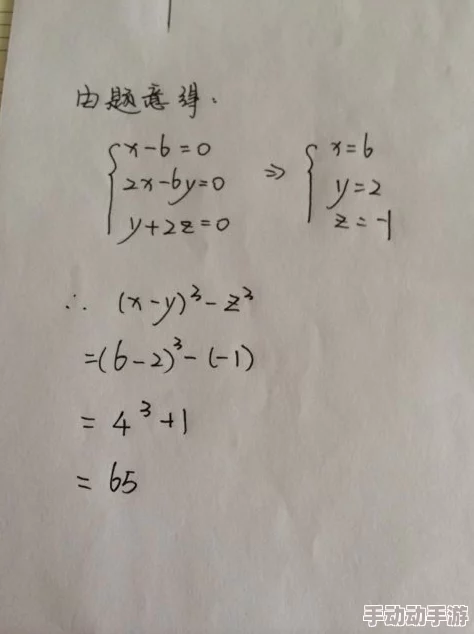 由题意得.
{x-6=0
2x-6y=0
y+2z=0 ⇒ {x=6
y=2
z=-1
∴ (x-y)³-z³
=(6-2)³-(-1)
=4³+1
=65
手动动手游